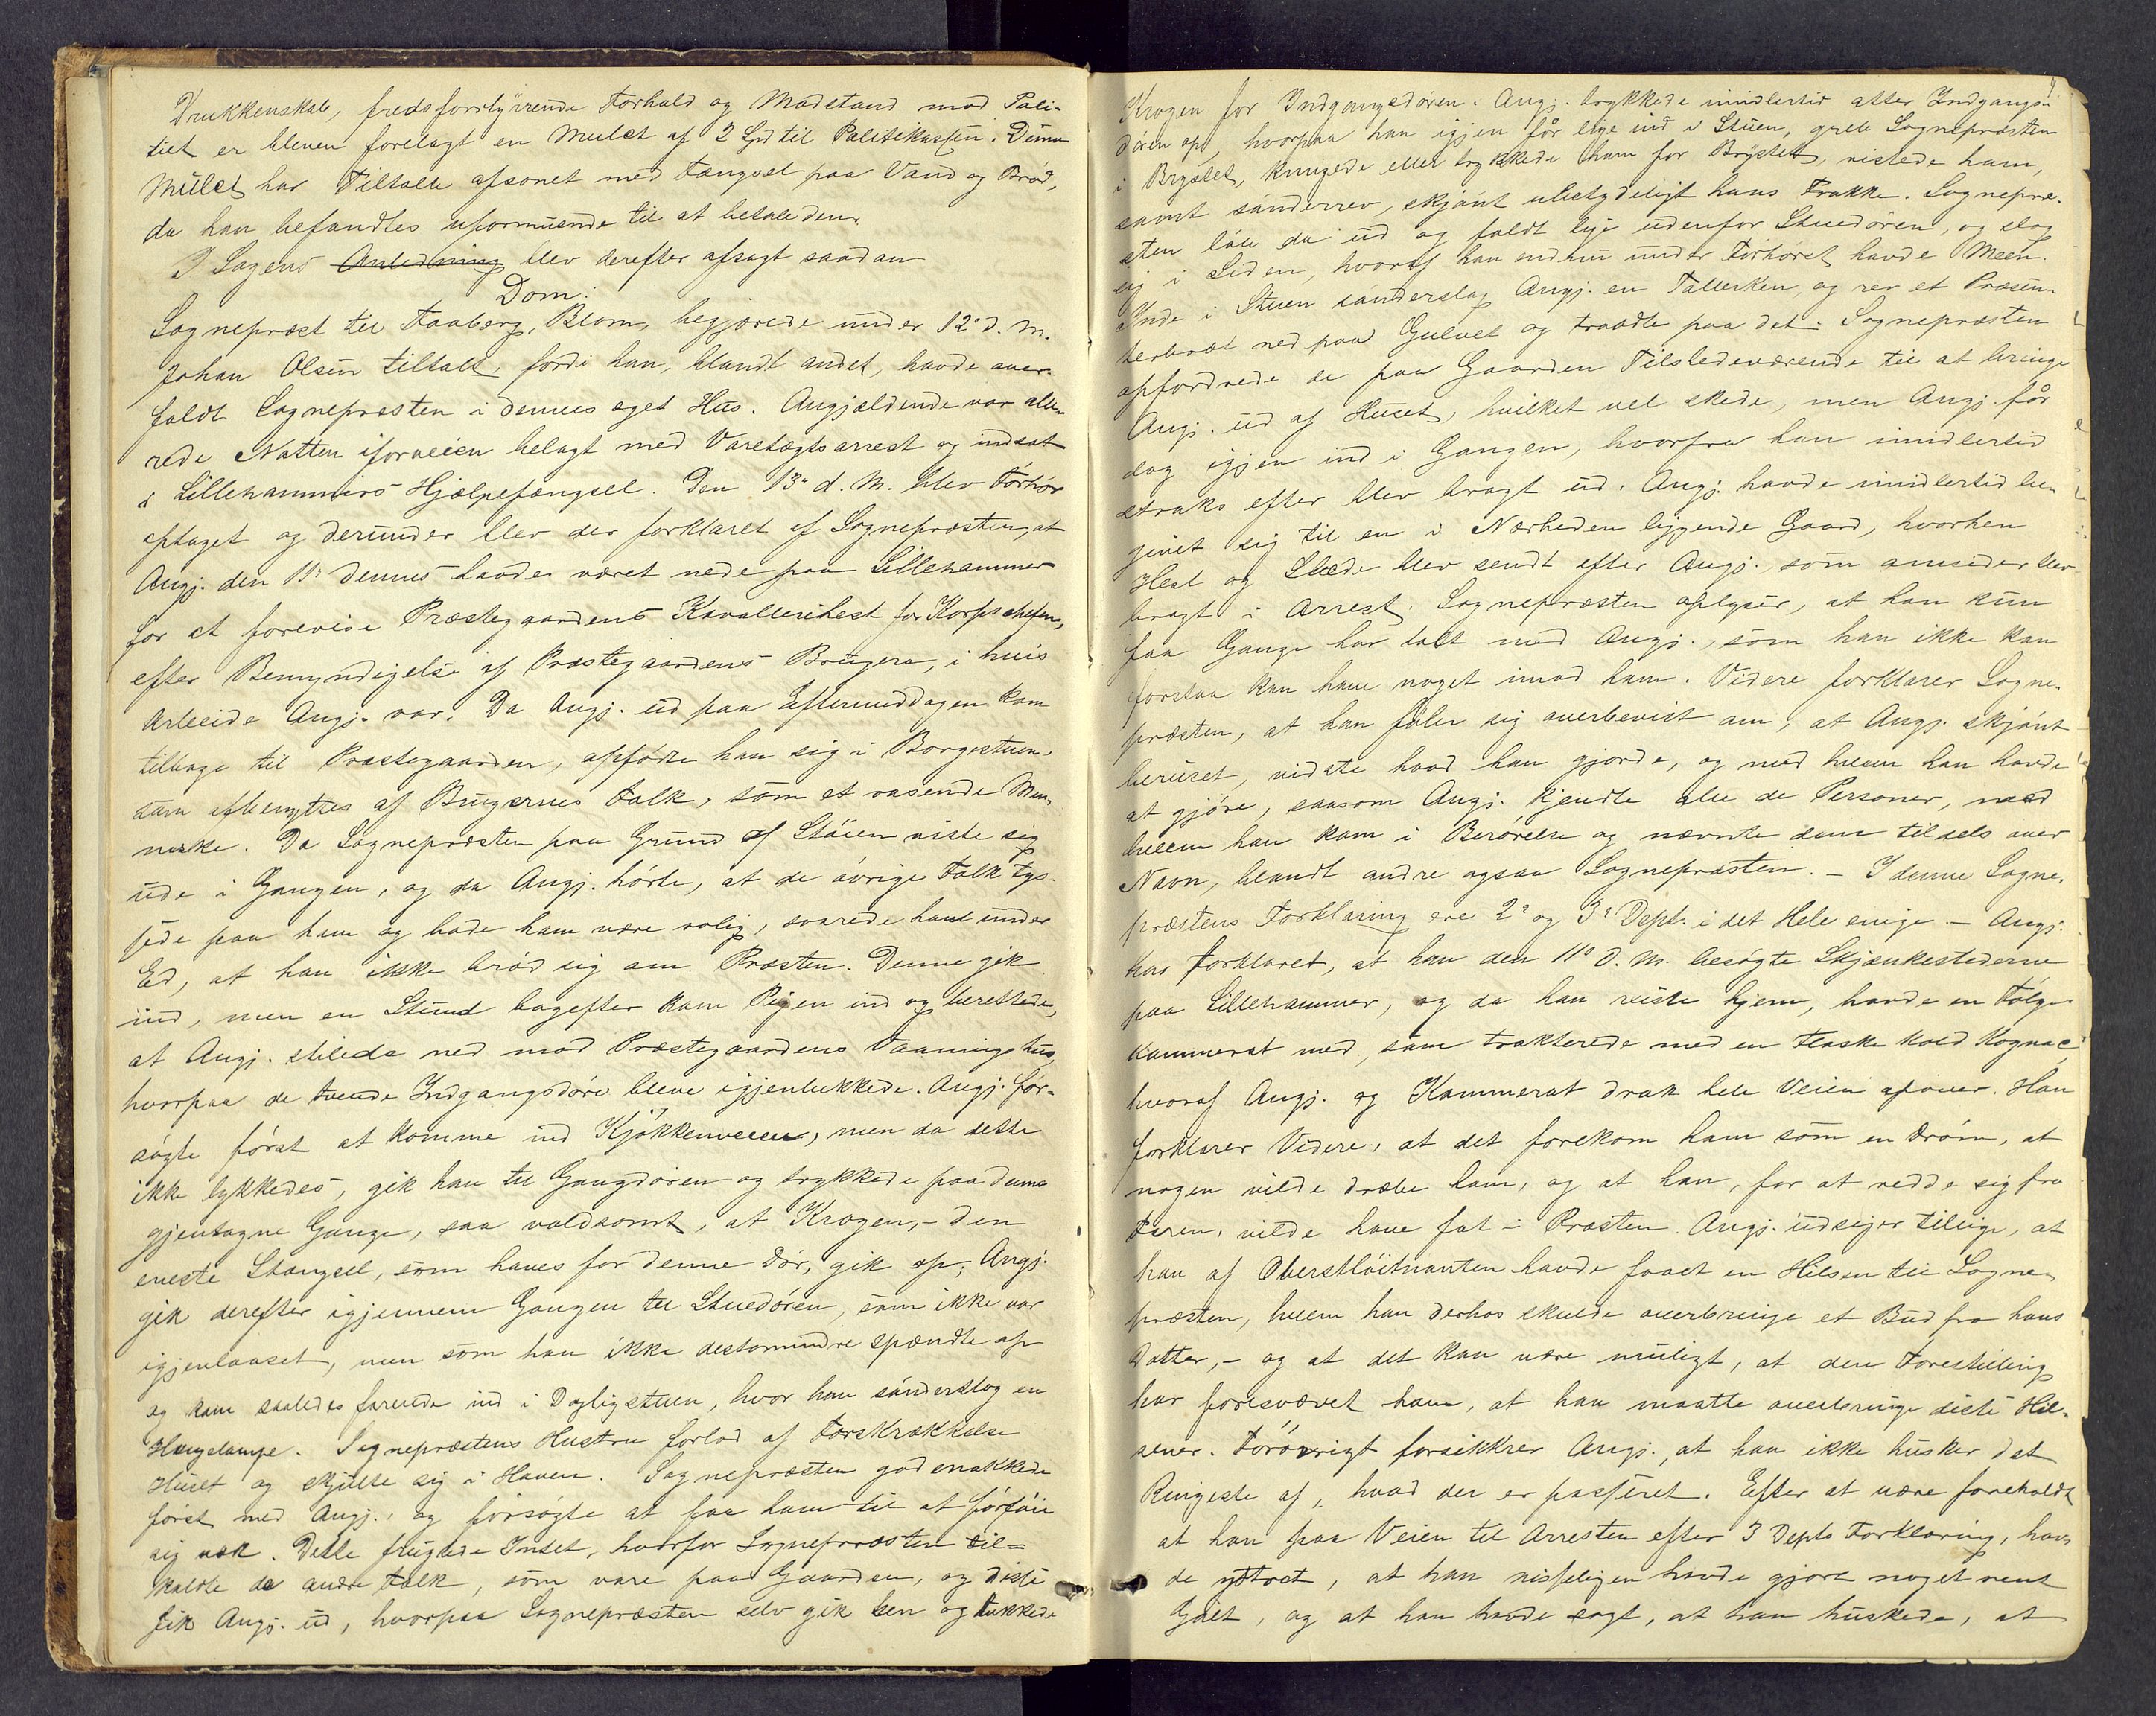 Drukkenskab, fredsforstyrrende Forhold og Modstand mod Poli-
tiet er bleven forelagt en Mulct af 2 Spd til Politikassen. Denne
Mulct har Tiltalte afsonet med Fængsel paa Vand og Brød,
da han befandtes uformuende til at betale den.
I Sagens Anledning blev derefter afsagt saadan
Dom:
Sognepræst til Faaberg, Blom, begjærede under 12te d. M.
Johan Olsen tiltalt, fordi han, blandt andet, havde over-
faldt Sognepræsten i dennes eget Hus. Angjældende var alle-
rede Natten iforveien belagt med Varetægtsarrest og indsat
i Lillehammers Hjælpefængsel. Den 13de d. M. blev Forhør
optaget og derunder blev der forklaret af Sognepræsten, at
Angj. den 11te dennes havde været nede paa Lillehammer
for at forevise Præstegaardens Kavallerihest for Korpschefen,
efter Bemyndigelse af Præstegaardens Brugere, i hvis
Arbeide Angj. var. Da Angj. ud paa Eftermiddagen kom
tilbage til Præstegaarden, opførte han sig i Borgestuen,
som afbenyttes af Brugernes Folk, som et rasende Men-
neske. Da Sognepræsten paa Grund af Støien viste sig
ude i Gangen, og da Angj. hørte, at de øvrige Folk tys-
sede paa ham og bade ham være rolig, svarede han under
Ed, at han ikke brød sig om Præsten. Denne gik
ind, men en Stund bagefter kom Pigen ind og berettede,
at Angj. stilede ned mod Præstegaardens Vaaningshus,
hvorpaa de tvende Indgangsdøre bleve igjenlukkede. Angj. for-
søgte først at komme ind Kjøkkenveien, men da dette
ikke lykkedes, gik han til Gangdøren og trykkede paa denne
gjentagne Gange, saa voldsomt, at Krogen, - den
eneste Stængsel, som haves for denne Dør, gik op; Angj.
gik derefter igjennem Gangen til Stuedøren, som ikke var
igjenlaaset, men som han ikke destomindre spændte op
og kom saaledes farende ind i Dagligstuen, hvor han sønderslog en
Hængelampe. Sognepræstens Hustru forlod af Forskrækkelse
Huset og skjulte sig i Haven. Sognepræsten godsnakkede
først med Angj., og forsøgte at faa ham til at forføie
sig væk. Dette frugtede Intet, hvorfor Sognepræsten til-
kaldte de andre Folk, som vare paa Gaarden, og disse
fik Angj. ud, hvorpaa Sognepræsten selv gik hen og lukkede
Krogen for Indgangsdøren. Angj. trykkede imidlertid atter Indgangs-
døren op, hvorpaa han igjen før lige ind i Stuen, greb Sognepræsten
i Brystet, knugede eller trykkede ham for Brystet, ristede ham,
samt sønderrev, skjønt ubetydeligt hans Frakke. Sognepræ-
sten løb da ud og faldt lige udenfor Stuedøren, og slog
sig i Siden, hvoraf han endnu under Forhøret havde Meen.
Inde i Stuen sønderslog Angj. en Tallerken, og rev et Præsen-
terbræt ned paa Gulvet og traadte paa det. Sognepræsten
opfordrede de paa Gaarden Tilstedeværende til at bringe
Angj. ud af Huset, hvilket vel skede, men Angj. før
dog igjen ind i Gangen, hvorfra han imidlertid
straks efter blev bragt ud. Angj. havde imidlertid be-
givet sig til en i Nærheden liggende Gaard, hvorhen
Hest og Slæde blev sendt efter Angj., som omsider blev
bragt i Arrest. Sognepræsten oplyser, at han kun
faa Gange har talt med Angj., som han ikke kan
forstaa kan have noget imod ham. Videre forklarer Sogne-
præsten, at han føler sig overbevist om, at Angj. skjønt
beruset, vidste hvad han gjorde, og med hvem han havde
at gjøre, saasom Angj. kjendte alle de Personer, med
hvem han kom i Berørelse og nævnte dem tildels ved
Navn, blandt andre ogsaa Sognepræsten. - I denne Sogne-
præstens Forklaring ere 2de og 3de Dept. i det Hele enige - Angj.
har forklaret, at han den 11te d. M. besøgte Skjænkestederne
paa Lillehammer, og da han reiste hjem, havde en Følge-
kammerat med, som trakterede med en Flaske kold Kognac
hvoraf Angj. og Kammerat drak hele Veien opover. Han
forklarer Videre, at det forekom ham som en Drøm, at
nogen vilde dræbe ham, og at han, for at redde sig fra
Faren, vilde have fat i Præsten. Angj. udsiger tillige, at
han af Oberstløitnanten havde faaet en Hilsen til Sogne-
præsten, hvem han derhos skulde overbringe et Bud fra hans
Datter, - og at det kan være muligt, at den Forestilling
har foresvævet ham, at han maatte overbringe disse Hil-
sener. Forøvrigt forsikkrer Angj., at han ikke husker det
Ringeste af, hvad der er passeret. Efter at være foreholdt
at han paa Veien til Arresten efter 3 Depts Forklaring, hav-
de yttret, at han visseligen havde gjort noget rent
Galt, og at han havde sagt, at han huskede, at